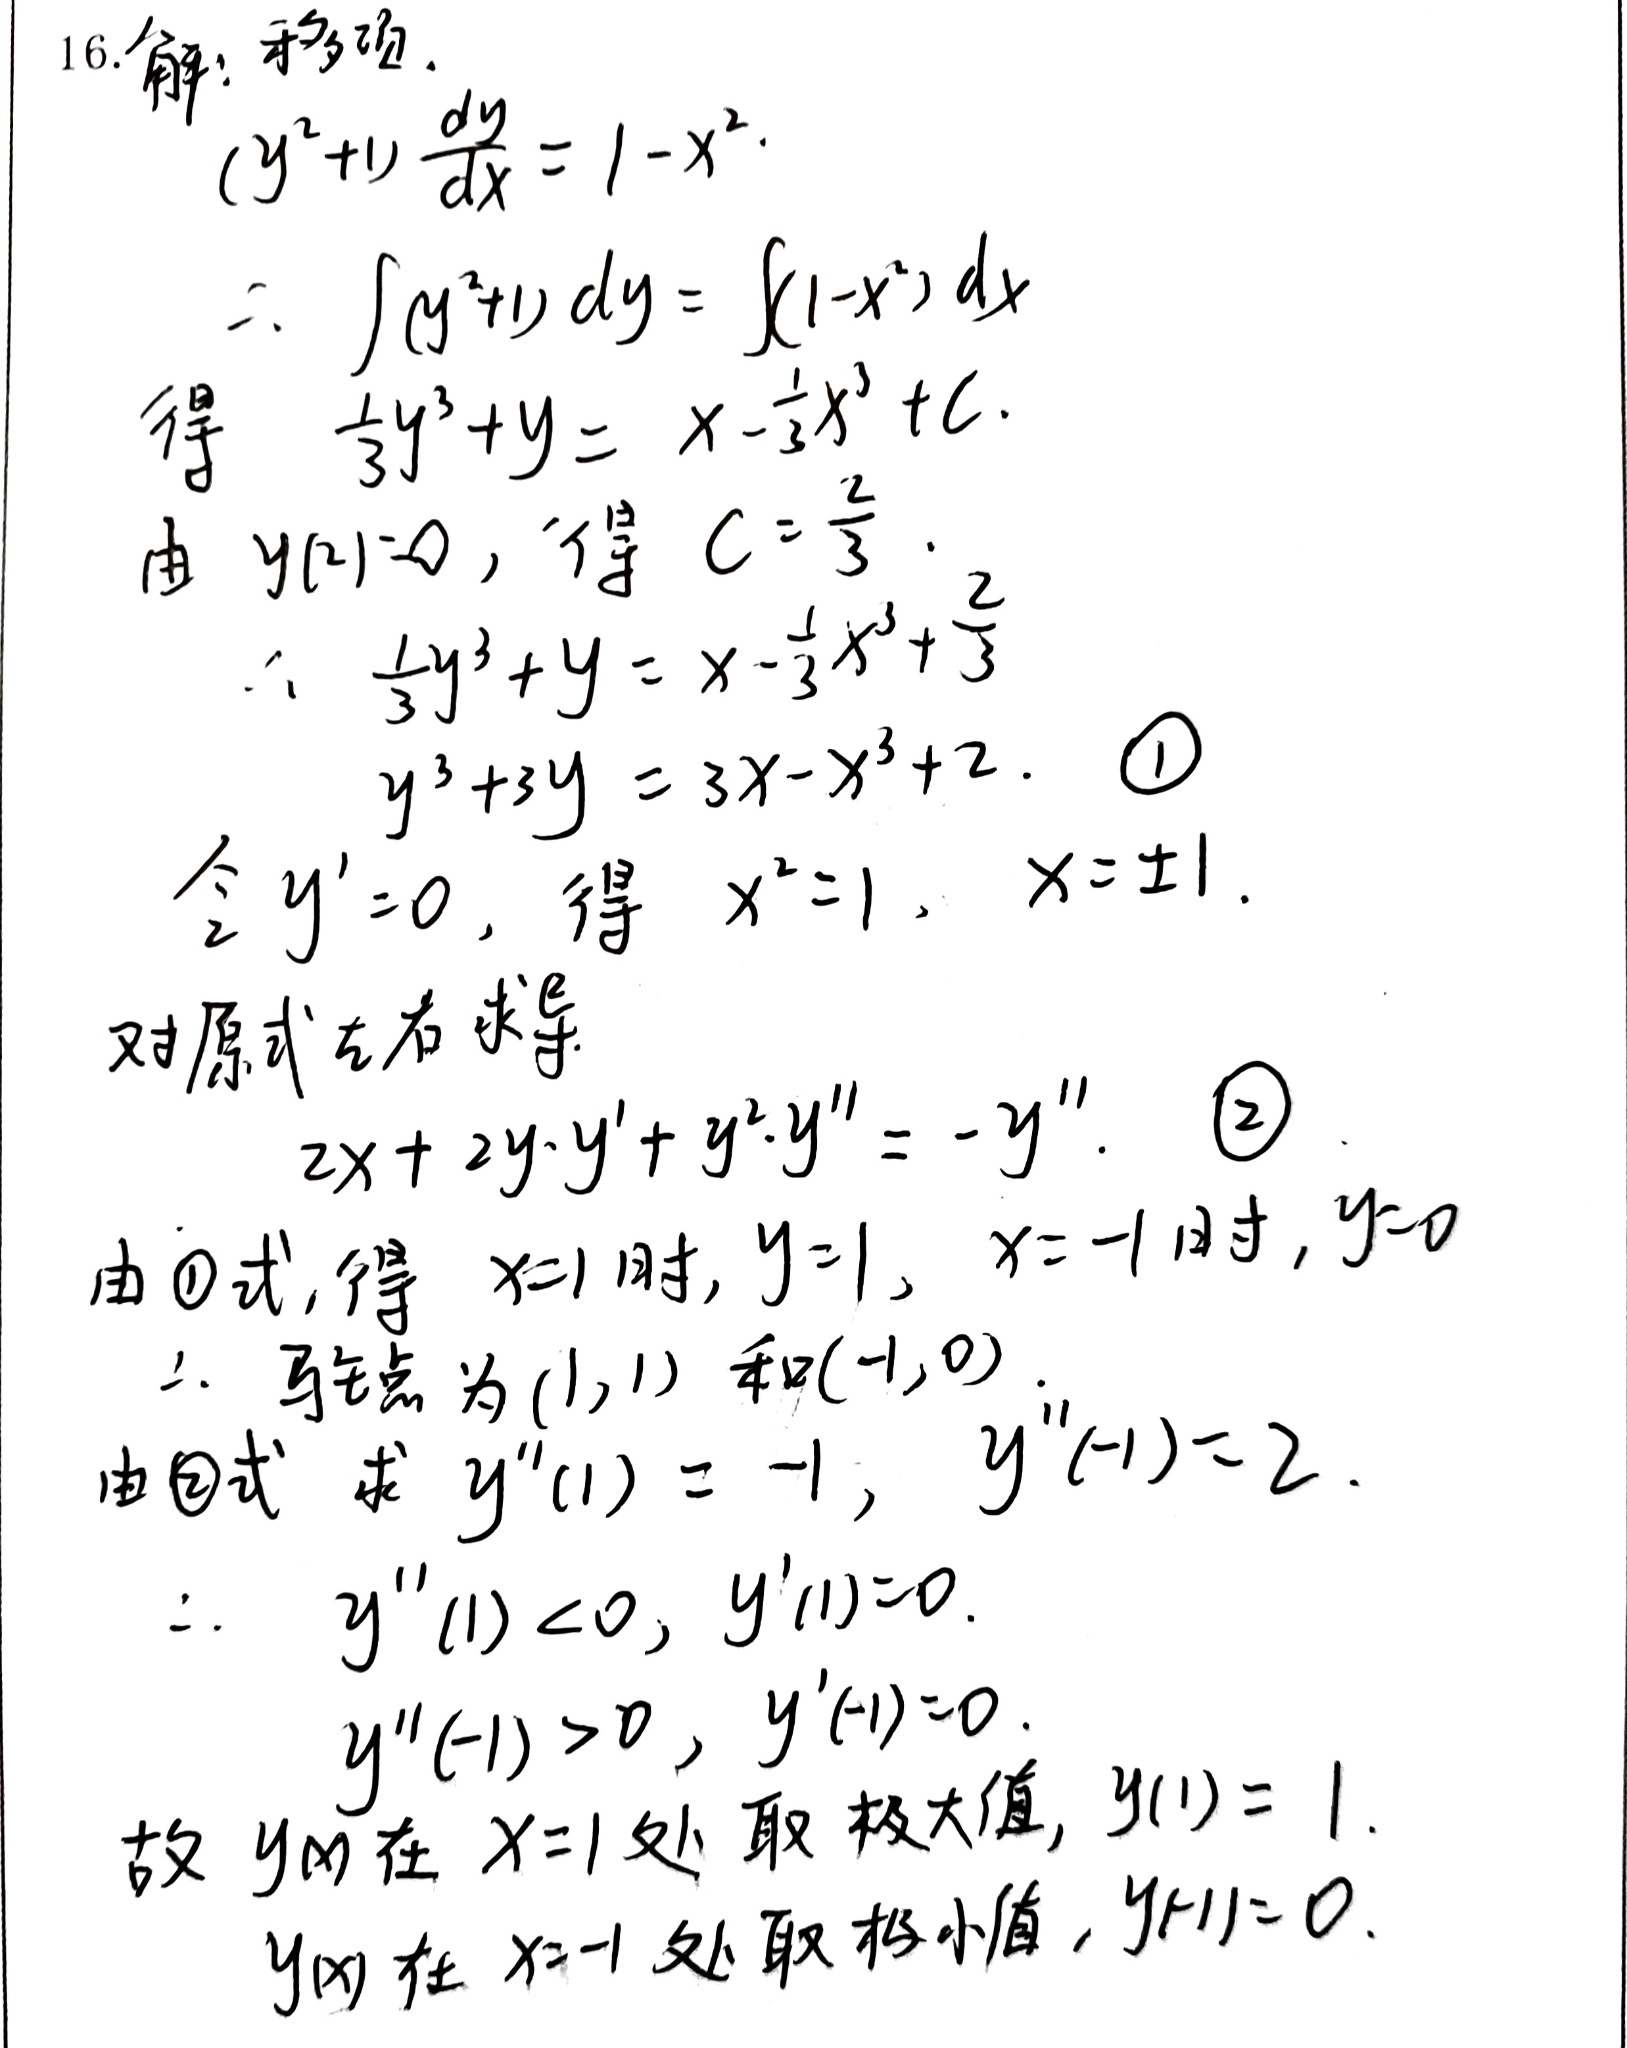 16.解: 移项.
(y²+1) dy/dx = 1-x².
∴ ∫(y²+1) dy = ∫(1-x²) dx
得 1/3y³+y = x-1/3x³+C.
由 y(2)=0, 得 C=2/3.
∴ 1/3y³+y = x-1/3x³+2/3
y³+3y = 3x-x³+2. ①
令 y'=0, 得 x²=1, x=±1.
对原式左右求导.
2x+2y·y'+y²·y''=-y''. ②
由①式,得 x=1时, y=1, x=-1时, y=0
∴ 驻点为(1,1) 和(-1,0).
由②式 求 y''(1) = -1, y''(-1)=2.
∴ y''(1)<0, y'(1)=0.
y''(-1)>0, y'(-1)=0.
故 y(x)在 x=1处 取 极大值, y(1)=1.
y(x)在 x=-1处 取极小值, y(-1)=0.